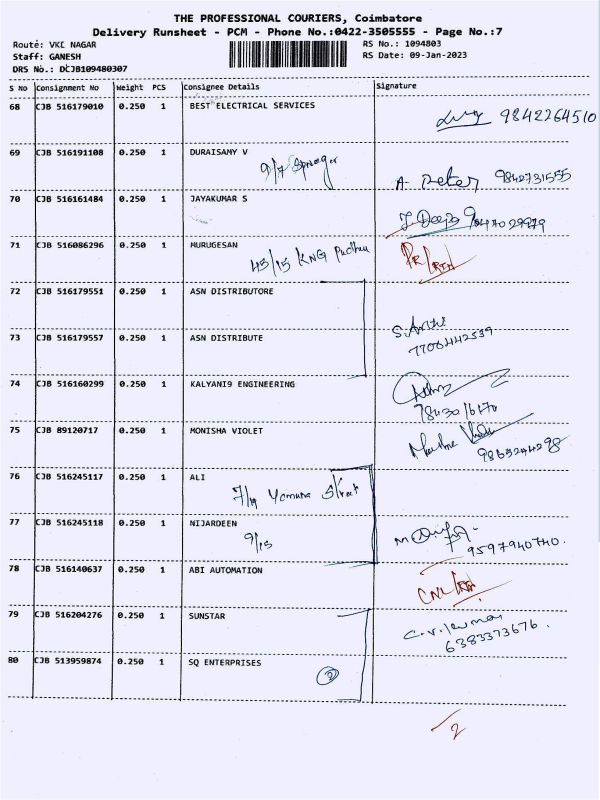 THE PROFESSIONAL COURIERS, Coimbatore
Delivery Runsheet - PCM - Phone No.:0422-3505555 - Page No.:7
Route: VKL NAGAR
RS No.: 1094803
Staff: GANESH
RS Date: 09-Jan-2023
DRS No.: DCJB109480307
S No Consignment No Weight PCS Consignee Details Signature
68 CJB 516179010 0.250 1 BEST ELECTRICAL SERVICES
9842264510
69 CJB 516191108 0.250 1 DURAISAMY V
9/7
A. Peter 9842731555
70 CJB 516161484 0.250 1 JAYAKUMAR S
J. Deepa
71 CJB 516086296 0.250 1 MURUGESAN
45/15 KNG Pudhur
72 CJB 516179551 0.250 1 ASN DISTRIBUTORE
73 CJB 516179557 0.250 1 ASN DISTRIBUTE
7708442539
74 CJB 516160299 0.250 1 KALYANI9 ENGINEERING
75 CJB 89120717 0.250 1 MONISHA VIOLET
76 CJB 516245117 0.250 1 ALI
7/19 Yamuna Street
77 CJB 516245118 0.250 1 NIJARDEEN
9/15
9597940740.
78 CJB 516140637 0.250 1 ABI AUTOMATION
79 CJB 516204276 0.250 1 SUNSTAR
6383373676.
80 CJB 513959874 0.250 1 SQ ENTERPRISES
2
2